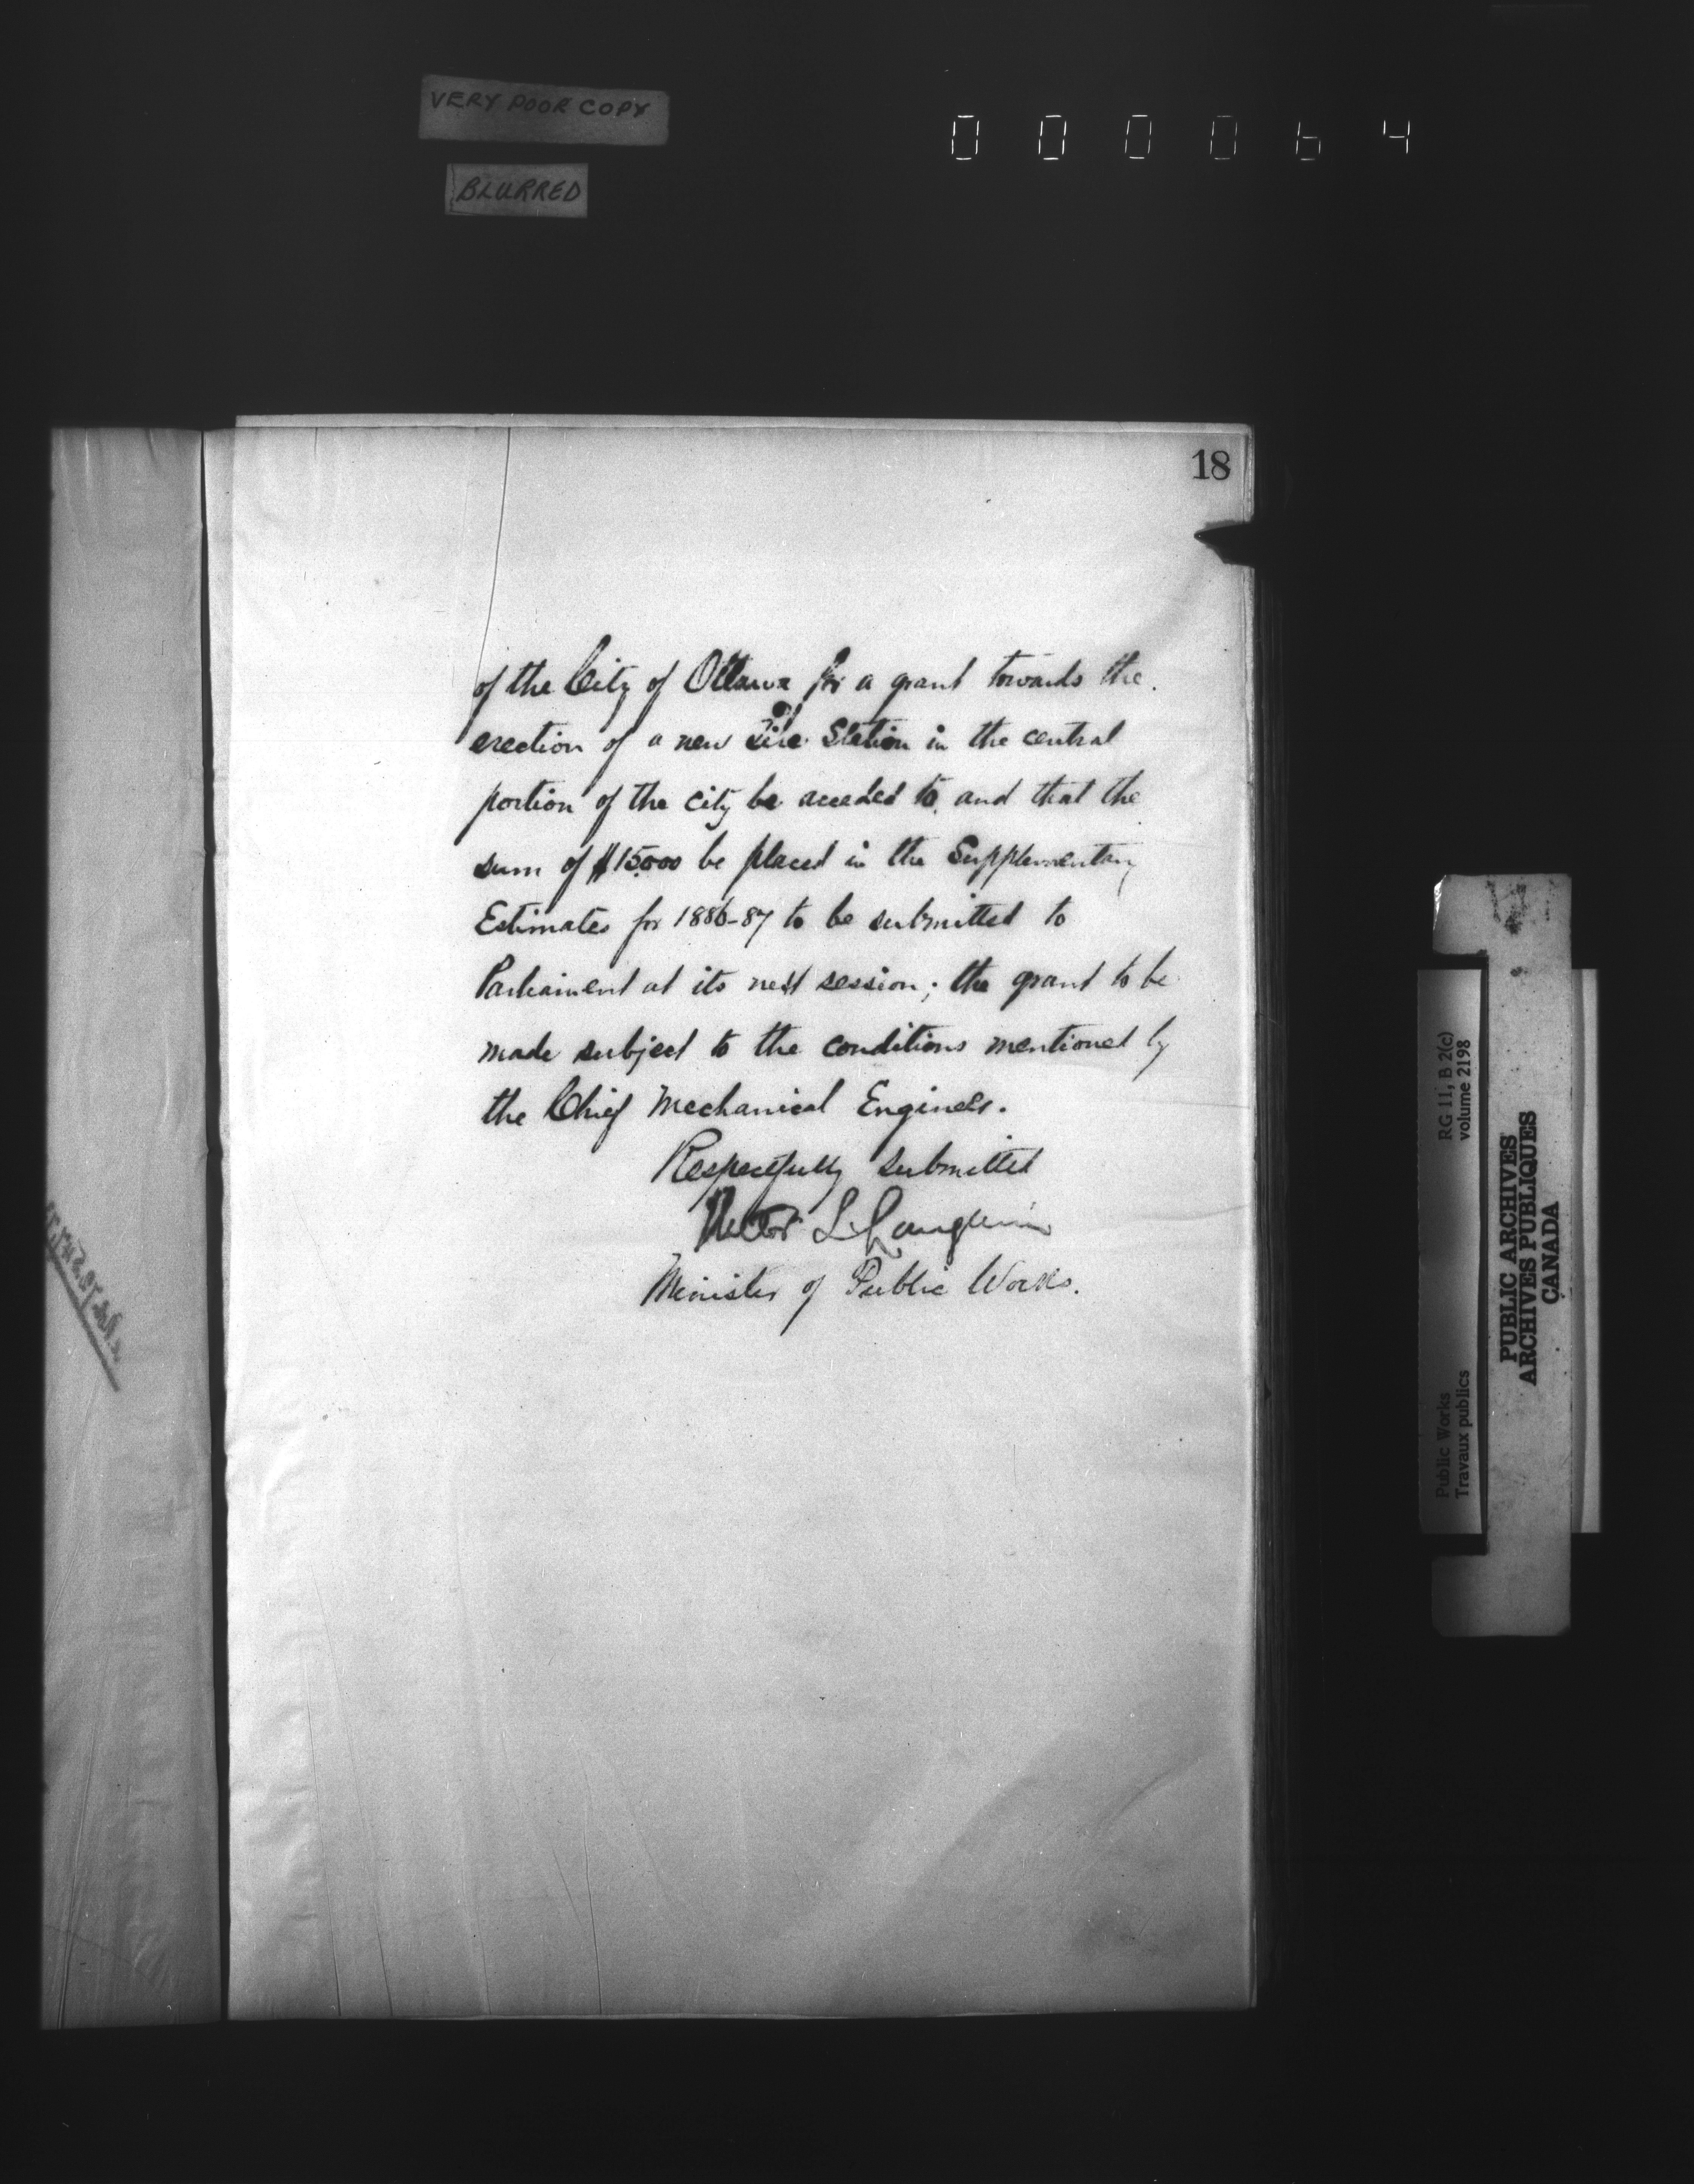 VERY POOR COPY
BLURRED
000064
18
of the City of Ottawa for a grant towards the
erection of a new Fire Station in the central
portion of the city be acceded to and that the
sum of $15,000 be placed in the Supplementary
Estimates for 1886-87 to be submitted to
Parliament at its next session; the grant to be
made subject to the conditions mentioned by
the Chief Mechanical Engineer.
Respectfully submitted
Hector L. Langevin
Minister of Public Works.
Public Works
Travaux publics
RG 11, B 2(c)
volume 2198
PUBLIC ARCHIVES
ARCHIVES PUBLIQUES
CANADA